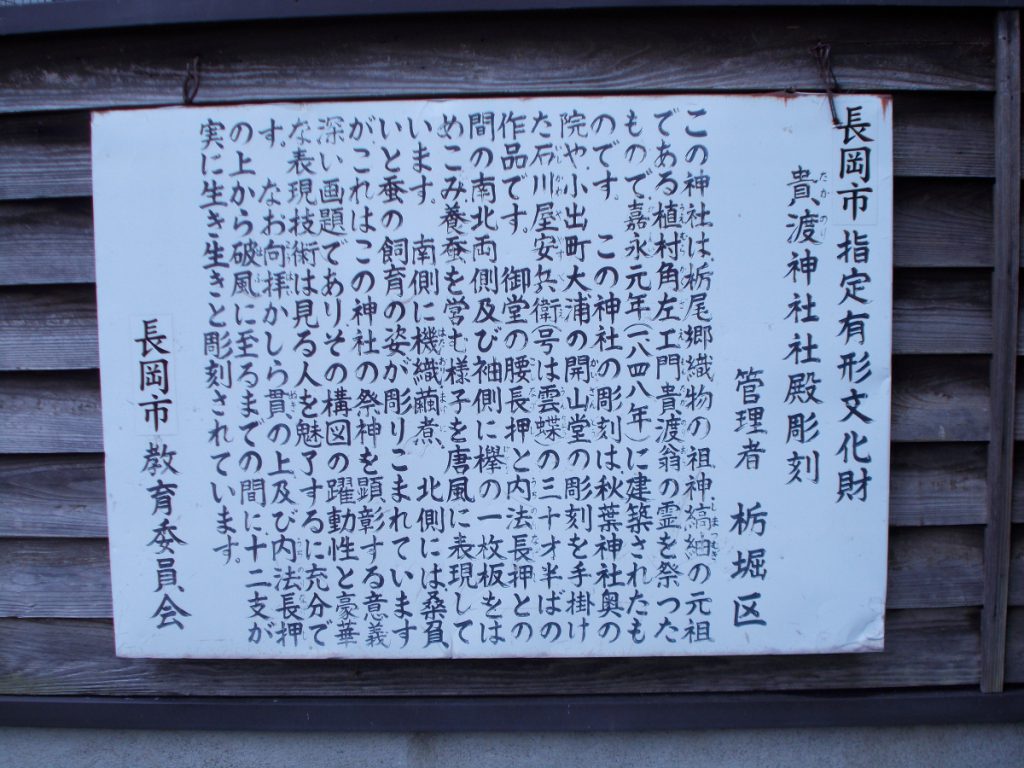 長岡市指定有形文化財
貴渡神社社殿彫刻
管理者 栃堀区
この神社は、栃尾郷織物の祖神、縞紬の元祖
である植村角左エ門貴渡翁の霊を祭った
もので嘉永元年(一八四八年)に建築されたも
のです。 この神社の彫刻は、秋葉神社奥の
院や、小出町大浦の開山堂の彫刻を手掛け
た石川屋安兵衛(号は雲蝶)の三十才半ばの
作品です。 御堂の腰長押と内法長押との
間の南北両側及び袖側に欅の一枚板をは
めこみ養蚕を営む様子を唐風に表現して
います。 南側に機織、繭煮、北側には桑負
いと蚕の飼育の姿が彫りこまれています
が、これはこの神社の祭神を顕彰する意義
深い画題でありその構図の躍動性と豪華
な表現技術は見る人を魅了するに充分で
す。 なお向拝かしら貫の上及び内法長押
の上から破風に至るまでの間に、十二支が
実に生き生きと彫刻されています。
長岡市教育委員会